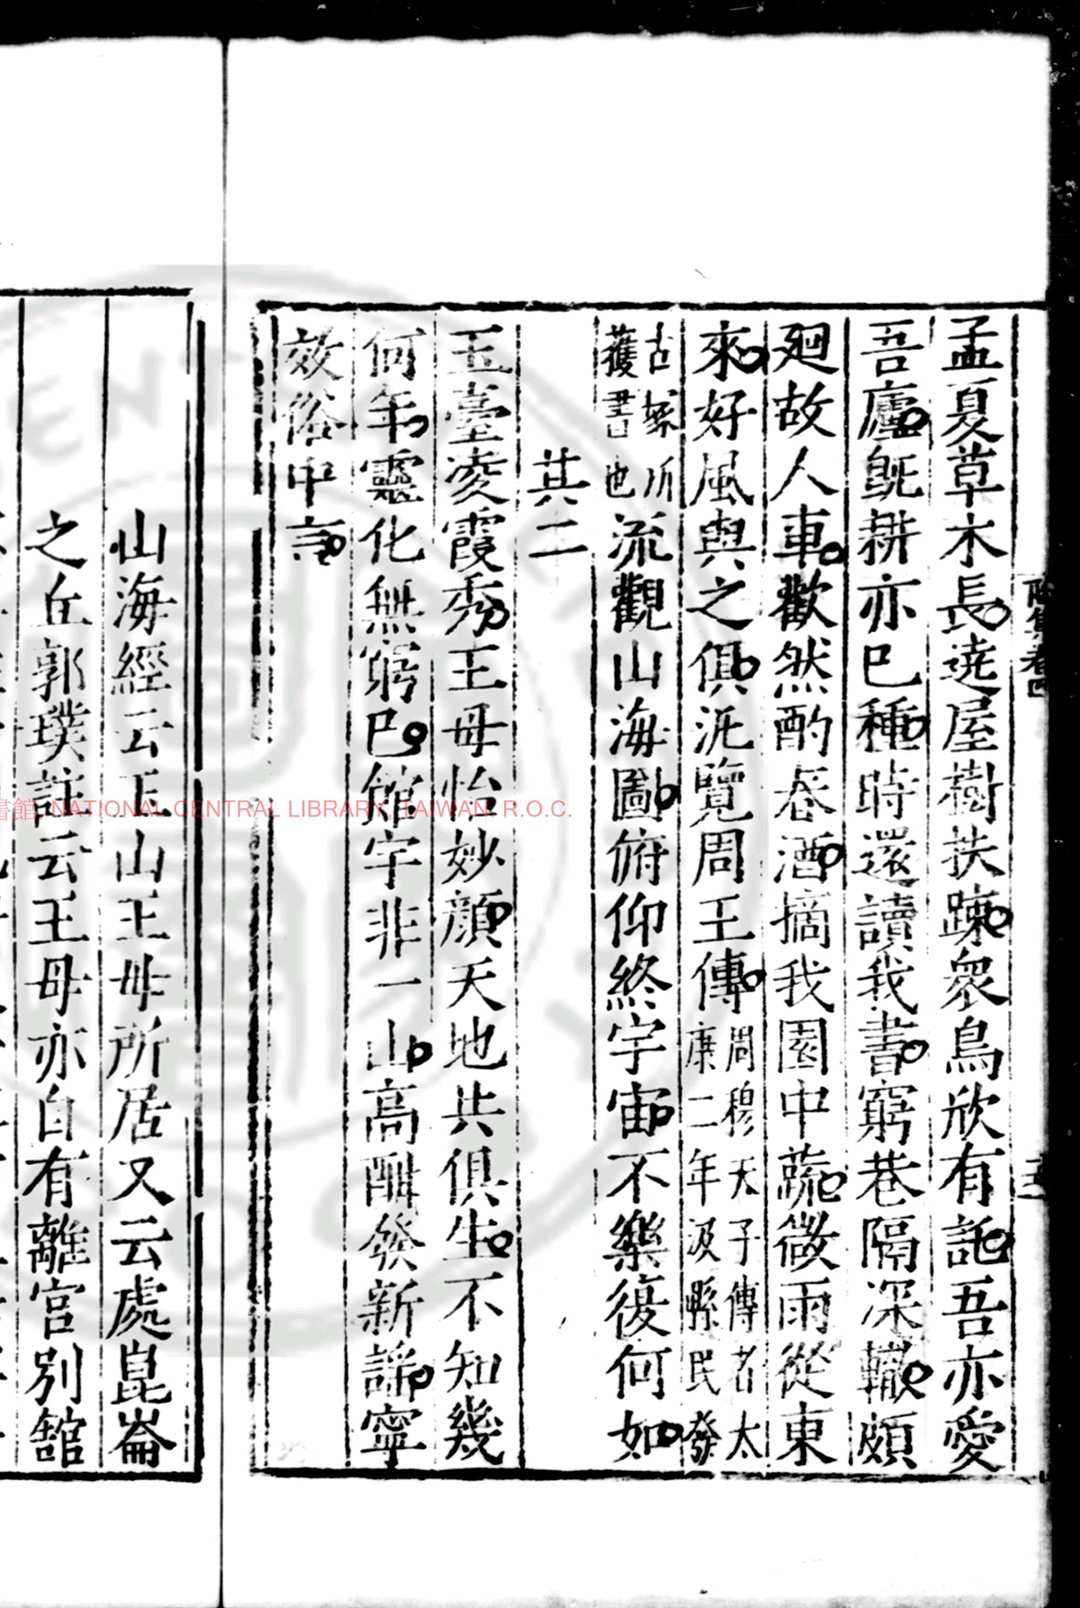 孟夏草木長遶屋樹扶踈衆鳥欣有託吾亦愛
吾廬旣耕亦已種時還讀我書窮巷隔深轍頗
廻故人車歡然酌春酒摘我園中蔬微雨從東
來好風與之俱汎覽周王傳周穆天子傳者太
康二年汲縣民發
古冢所
獲書也流觀山海圖俯仰終宇宙不樂復何如
其二
玉臺凌霞秀王母怡妙顔天地共俱生不知幾
何年靈化無窮已館宇非一山高酣發新謡寧
效俗中言
山海經云玉山王母所居又云處崑崙
之丘郭璞註云王母亦自有離宫別館
NATIONAL CENTRAL LIBRARY, TAIWAN R.O.C.